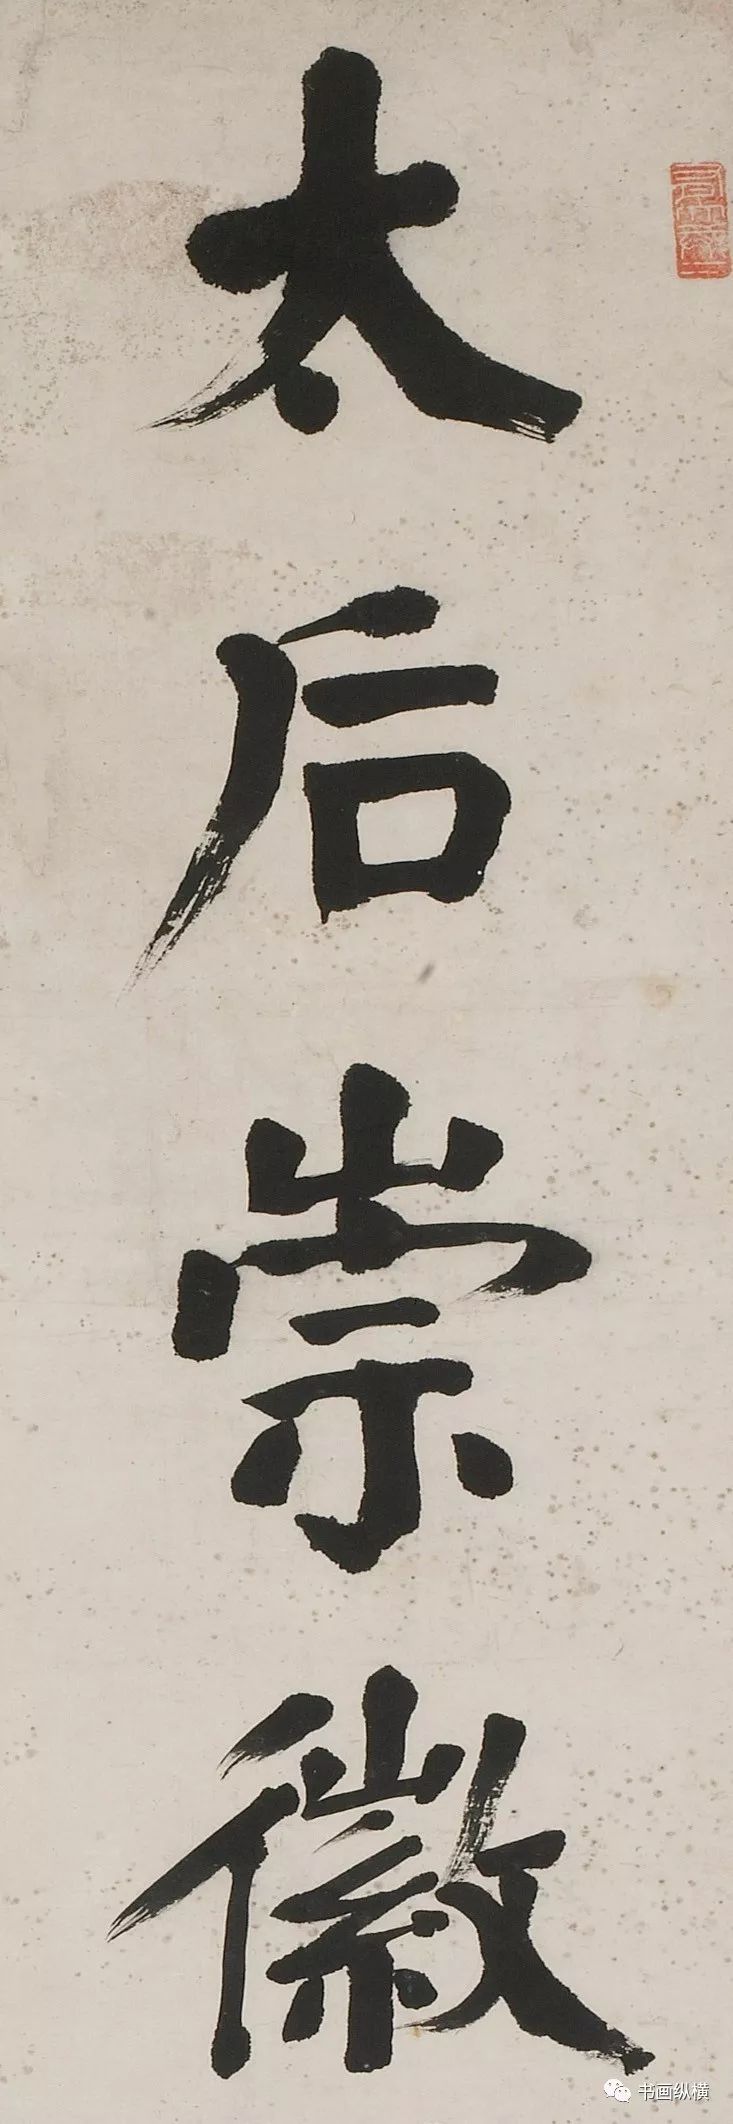 太后崇徽
书画纵横